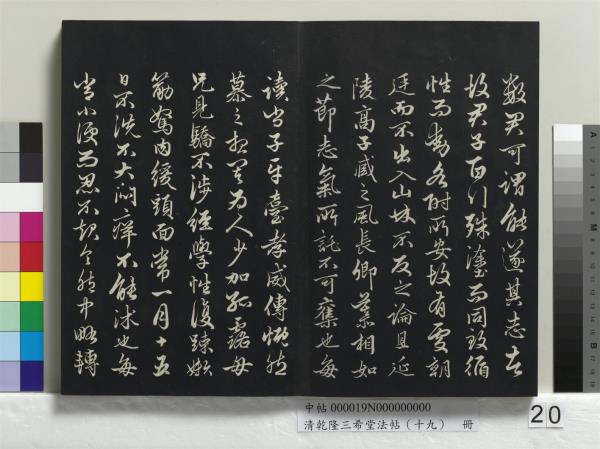 數君可謂能遂其志者
故君子百行殊塗而同致循
性而動各附所安故有處朝
廷而不出入山林不反之論且延
陵高子臧之風長卿慕相如
之節志氣所託不可奪也每
讀尚子平臺孝威傳慨然
慕之想其為人少加孤露母
兄見驕不涉經學性復疎嬾
筋駑肉緩頭面常一月十五
日不洗不大悶癢不能沐也每
當小便而忍不起令胞中略轉
中帖 000019N000000000
清乾隆三希堂法帖(十九) 冊
20